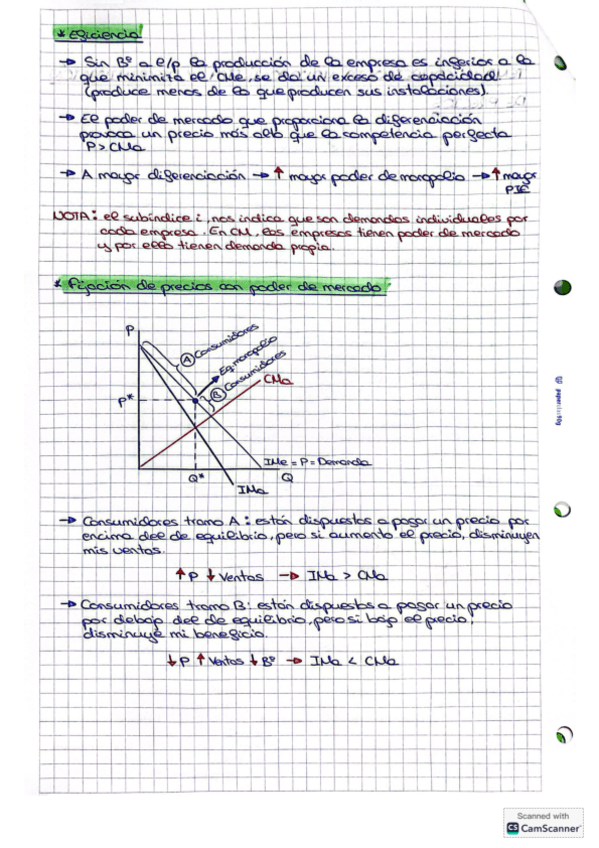 * Eficiencia
→ Sin Bº a l/p la producción de la empresa es inferior a la
que minimiza el CMe, se da un exceso de capacidad
(produce menos de lo que producen sus instalaciones).
→ El poder de mercado que proporciona la diferenciación
provoca un precio más alto que la competencia perfecta
P > CMa
→ A mayor diferenciación → ↑ mayor poder de monopolio → ↑ mayor
PIE
NOTA: el subíndice i, nos indica que son demandas individuales por
cada empresa. En CM, las empresas tienen poder de mercado
y por ello tienen demanda propia.
* Fijación de precios con poder de mercado
P
A Consumidores
Eq. monopolio
B Consumidores
CMa
P*
IMe = P = Demanda
Q*
Q
IMa
→ Consumidores tramo A: están dispuestos a pagar un precio por
encima del de equilibrio, pero si aumento el precio, disminuyen
mis ventas.
↑ P ↓ Ventas → IMa > CMa
→ Consumidores tramo B: están dispuestos a pagar un precio
por debajo del de equilibrio, pero si bajo el precio,
disminuye mi beneficio.
↓ P ↑ Ventas ↓ Bº → IMa < CMa
Scanned with
CS CamScanner